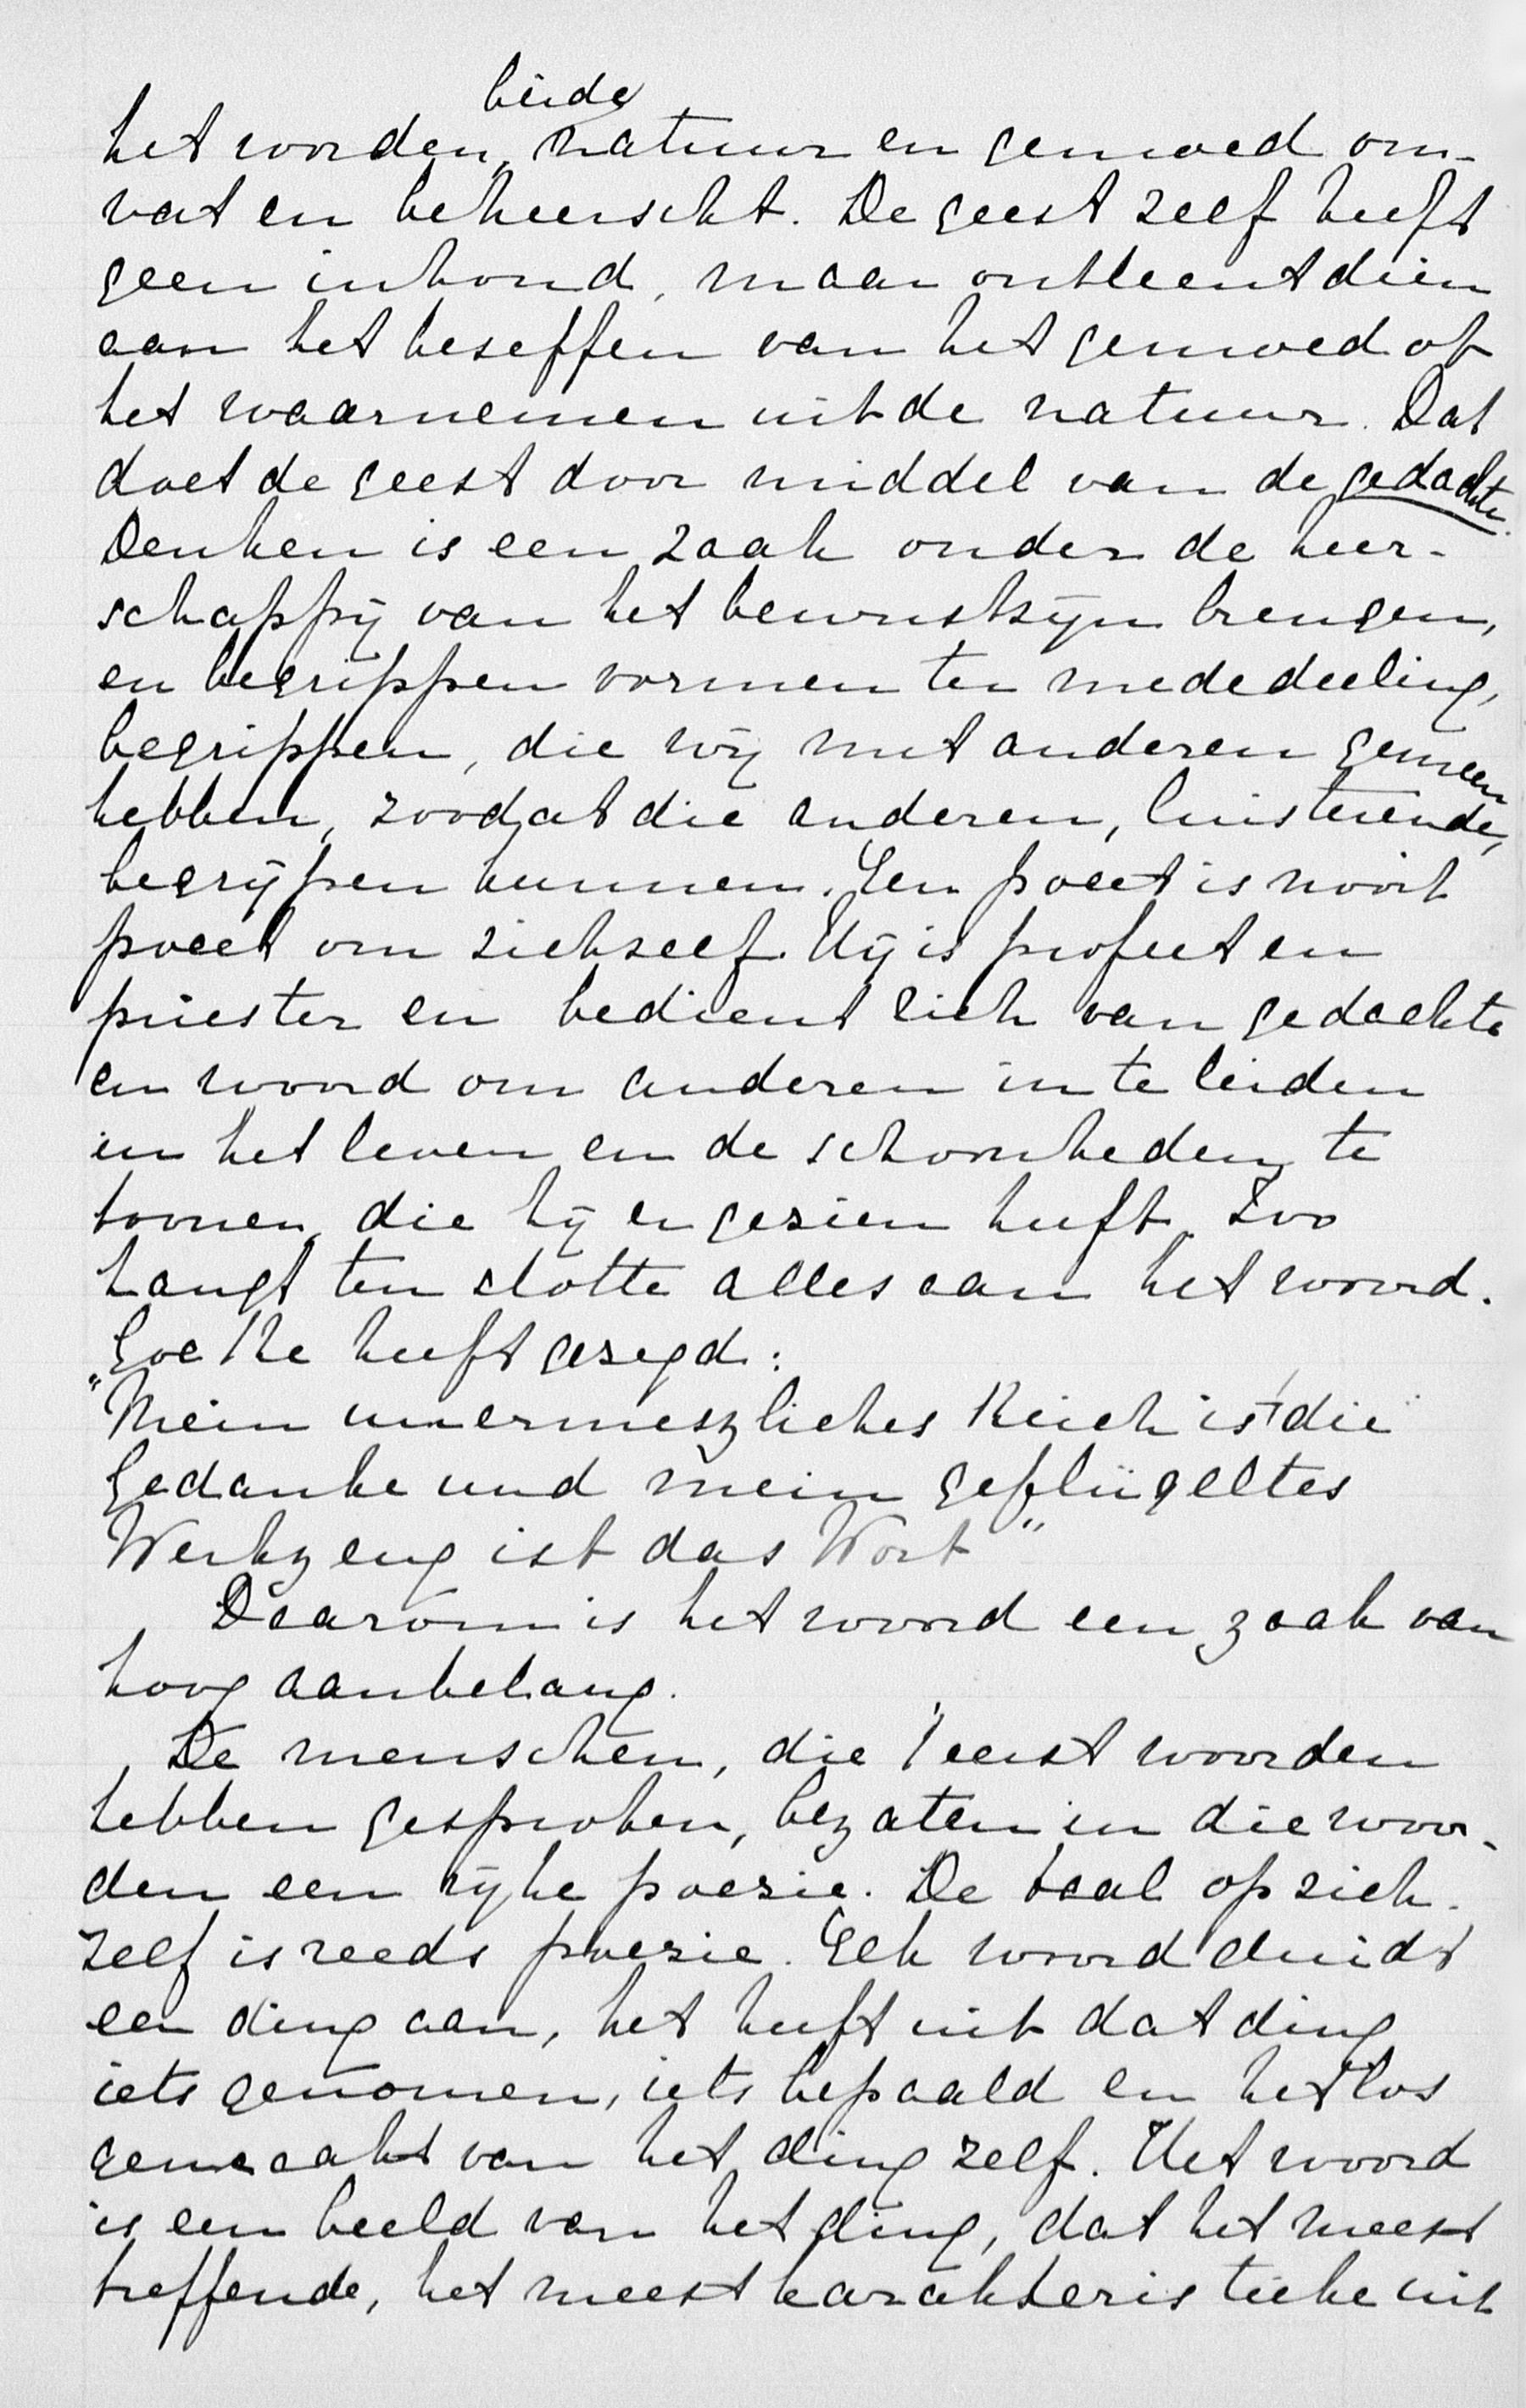 beide
het worden, natuur en gemoed om-
vat en beheerscht. De geest zelf heeft
geen inhoud, maar ontleent dien
aan het beseffen van het gemoed of
het waarnemen uit de natuur. Dat
doet de geest door middel van de gedachte.
Denken is een zaak onder de heer-
schappij van het bewustzijn brengen,
en begrippen vormen ter mededeeling,
begrippen, die wij met anderen gemeen
hebben, zoodat die anderen, luisterende,
begrijpen kunnen. Een poëet is nooit
poëet om zichzelf. Hij is profeet en
priester en bedient zich van gedachte
en woord om anderen in te leiden
in het leven en de schoonheden te
toonen, die hij er gezien heeft. Zoo
hangt ten slotte alles aan het woord.
Goethe heeft gezegd:
"Mein unermeszliches Reich ist die
Gedanke und mein geflügeltes
Werkzeug ist das Wort"
Daarom is het woord een zaak van
hoog aanbelang.
De menschen, die 't eerst woorden
hebben gesproken, bezaten in die woor-
den een rijke poezie. De taal op zich-
zelf is reeds poezie. Elk woord duidt
een ding aan, het heeft uit dat ding
iets genomen, iets bepaald en het los
gemaakt van het ding zelf. Het woord
is een beeld van het ding, dat het meest
treffende, het meest karakteristieke uit